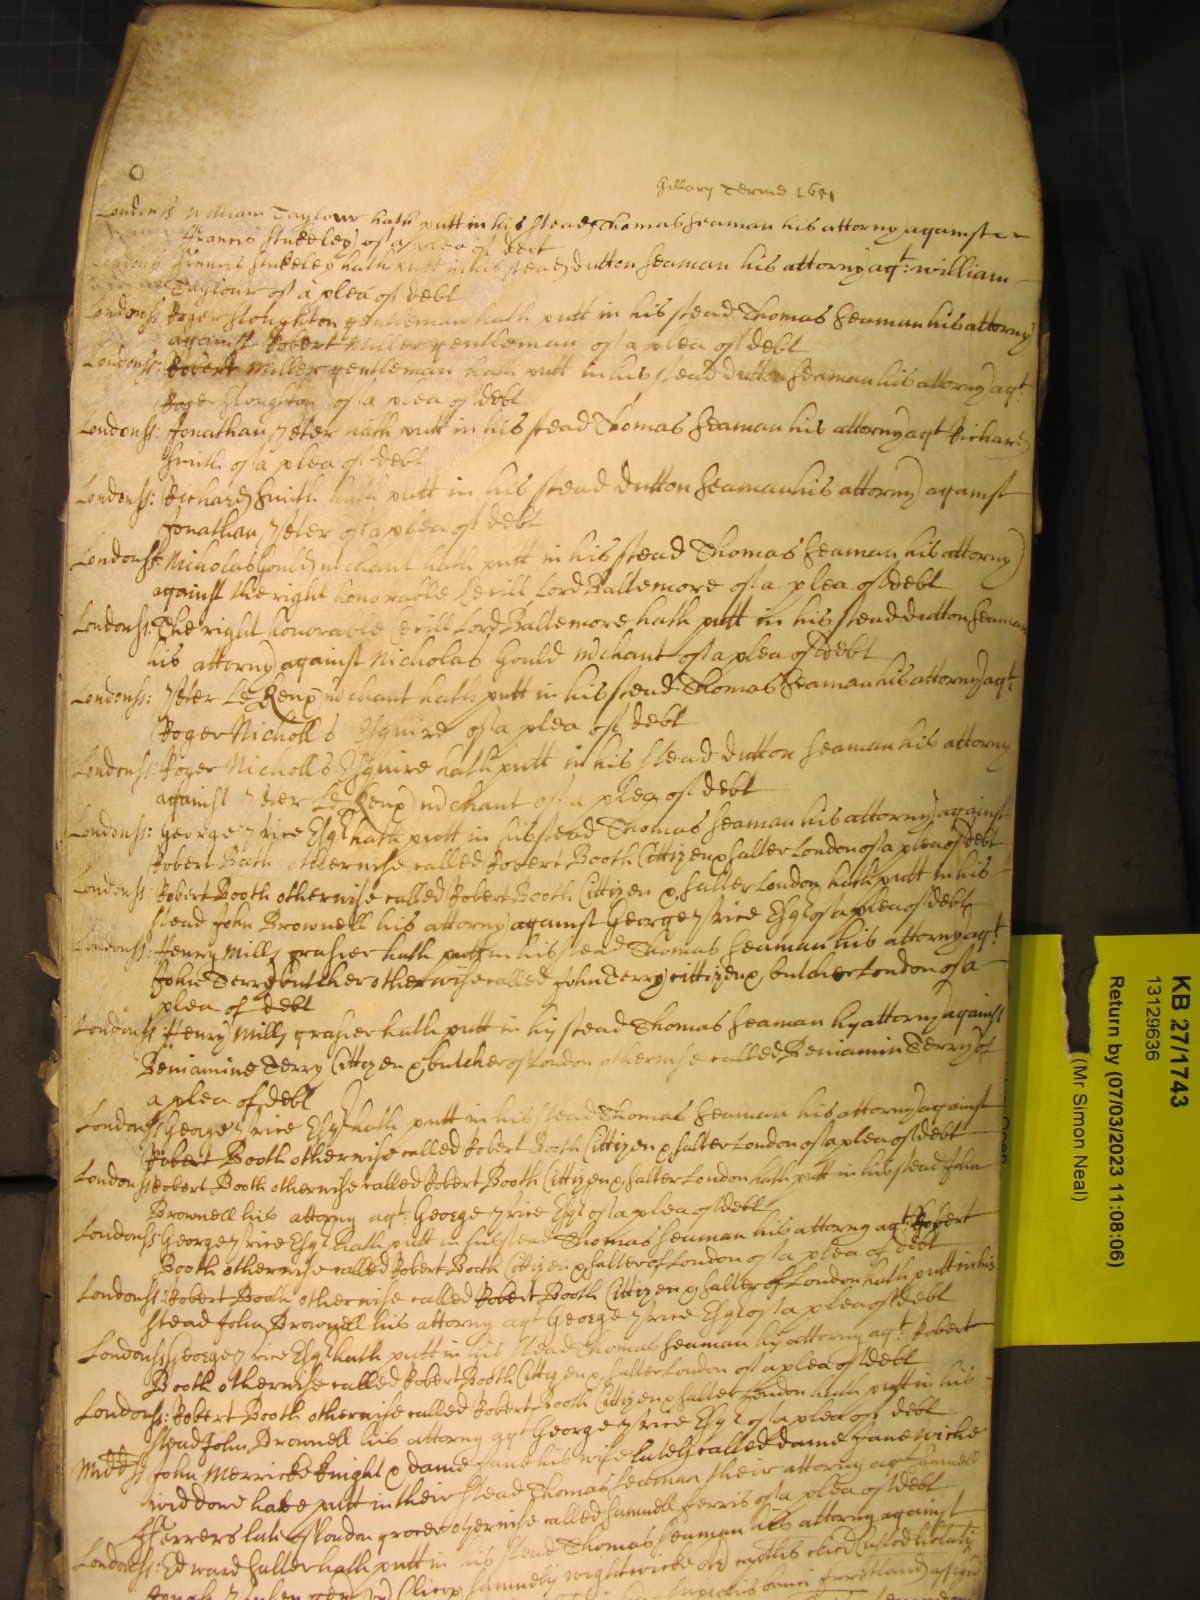 Hillary Terme 1651
Londonss William Taylour hath putt in his stead Thomas Seaman his attorny against
Francis Stukeley of a plea of debt
Londonss Francis Stukeley hath putt in his stead Dutton Seaman his attorny agt: William
Taylour of a plea of debt
Londonss: Roger Sloughton gentleman hath putt in his stead Thomas Seaman his attorny
against Robert Miller gentleman of a plea of debt
Londonss: Robert Miller gentleman hath putt in his stead Dutton Seaman his attorny agt:
Roger Sloughton of a plea of debt
Londonss: Jonathan Peter hath putt in his stead Thomas Seaman his attorny agt Richard
Smith of a plea of debt
Londonss: Richard Smith hath putt in his stead Dutton Seaman his attorny against
Jonathan Peter of a plea of debt
Londonss: Nicholas Gould mchant hath putt in his stead Thomas Seaman his attorny
against the right honorable Cecill Lord Baltemore of a plea of debt
Londonss: The right honorable Cecill Lord Baltemore hath putt in his stead Dutton Seaman
his attorny against Nicholas Gould mchant of a plea of debt
Londonss: Peter Le Keux mchant hath putt in his stead Thomas Seaman his attorny agt:
Roger Nicholls Esquire of a plea of debt
Londonss: Roger Nicholls Esquire hath putt in his stead Dutton Seaman his attorny
against Peter Le Keux mchant of a plea of debt
Londonss: George Price Esqr hath putt in his stead Thomas Seaman his attorny against
Robert Booth otherwise called Robert Booth Cittizen & salter London of a plea of debt
Londonss: Robert Booth otherwise called Robert Booth Cittizen & salter London hath putt in his
stead John Brownell his attorny against George Price Esqr of a plea of debt
Londonss: Henry Mills grasier hath putt in his stead Thomas Seaman his attorny agt:
John Terry butcher otherwise called John Terry cittizen & butcher London of a
plea of debt
Londonss: Henry Mills grasier hath putt in his stead Thomas Seaman his attorny against
Beniamine Terry Cittizen & butcher of London otherwise called Beniamin Terry of
a plea of debt
Londonss George Price Esqr hath putt in his stead Thomas Seaman his attorny against
Robert Booth otherwise called Robert Booth Cittizen & salter London of a plea of debt
Londonss Robert Booth otherwise called Robert Booth Cittizen & salter London hath putt in his stead John
Brownell his attorny agt: George Price Esqr of a plea of debt
Londonss: George Price Esqr hath putt in his stead Thomas Seaman his attorny agt: Robert
Booth otherwise called Robert Booth Cittizen & salter of London of a plea of debt
Londonss: Robert Booth otherwise called Robert Booth Cittizen & salter of London hath putt in his
stead John Brownell his attorny agt George Price Esqr of a plea of debt
Londonss George Price Esqr hath putt in his stead Thomas Seaman his attorny agt: Robert
Booth otherwise called Robert Booth Cittizen & salter London of a plea of debt
Londonss: Robert Booth otherwise called Robert Booth Cittizen & salter London hath putt in his
stead John Brownell his attorny agt George Price Esqr of a plea of debt
Midd ss John Merricke Knight & dame Jane his wife lately called dame Jane Wiche
widdow have putt in their stead Thomas Seaman their attorny agt Samuell
Fferrers late of London grocer otherwise called Samuell Ferris of a plea of debt
Londonss: Edward Salter hath putt in his stead Thomas Seaman his attorny against
Samuely Wightwicke
KB 27/1743
13129636
Return by (07/03/2023 11:08:06)
(Mr Simon Neal)